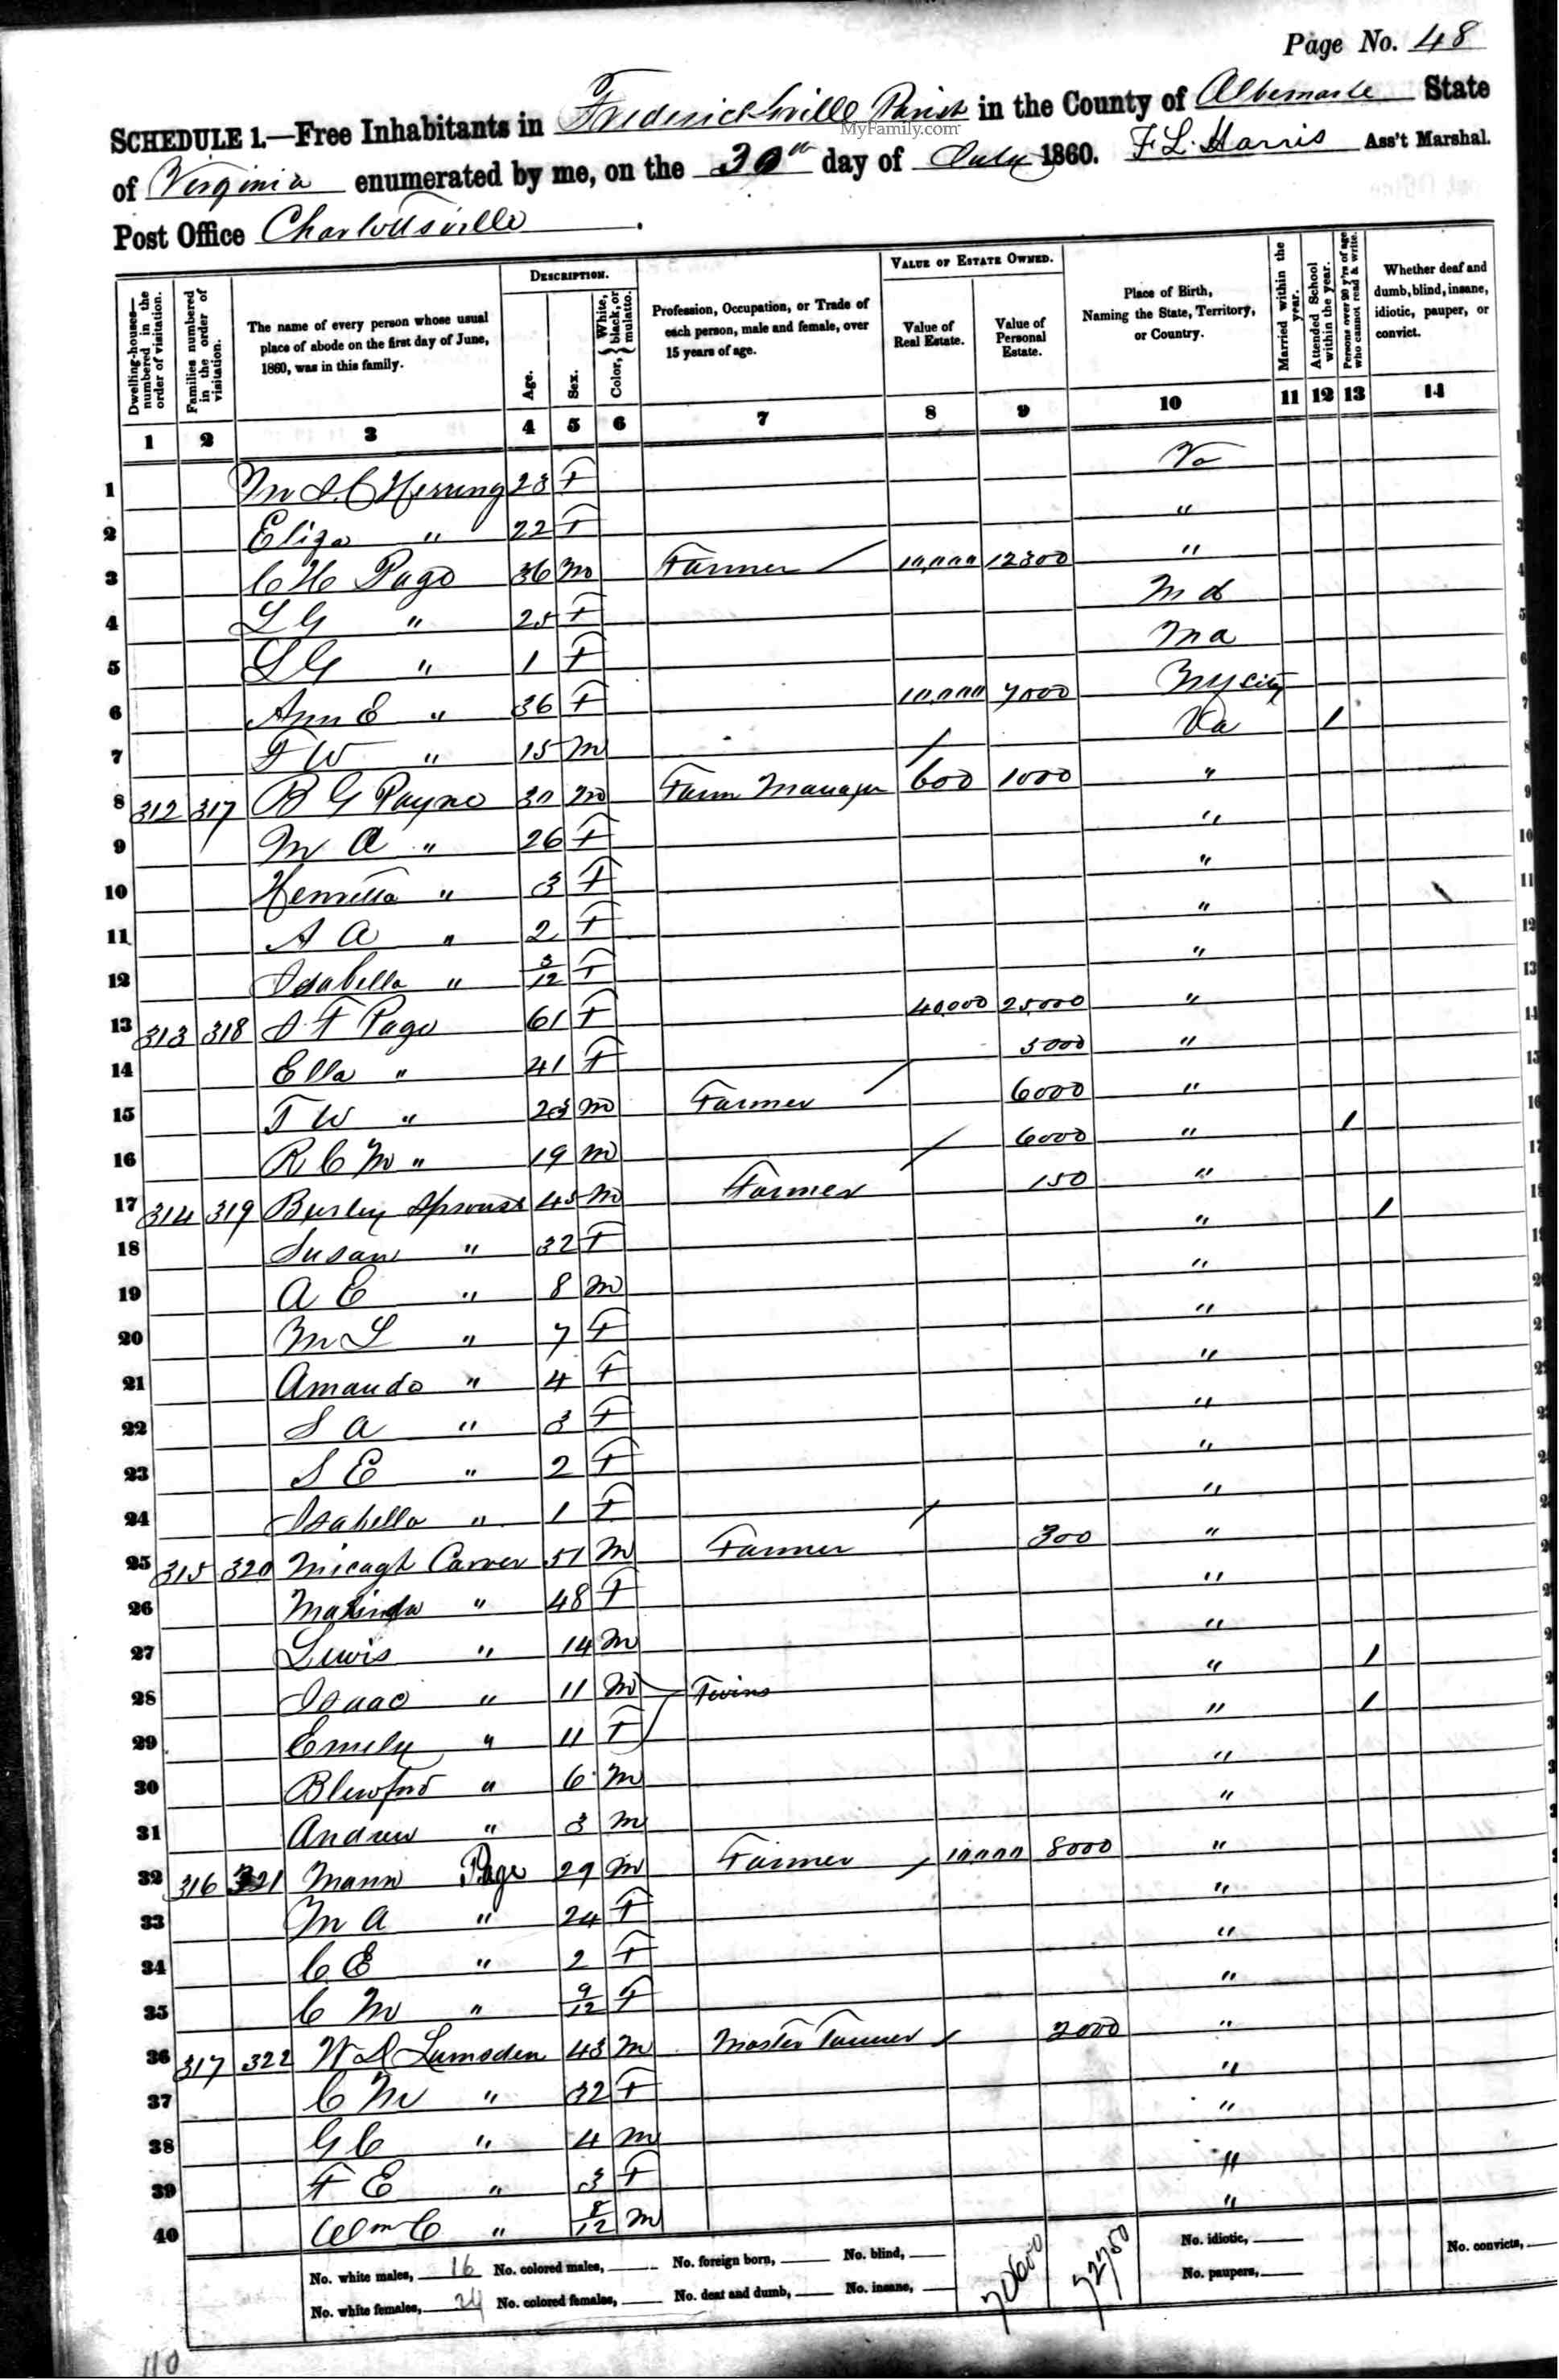 Page No. 48
SCHEDULE 1.—Free Inhabitants in Fredericksville Parish in the County of Albemarle State
MyFamily.com
of Virginia enumerated by me, on the 30th day of July 1860. F. L. Harris Ass't Marshal.
Post Office Charlottsville.
Dwelling-houses—numbered in the order of visitation.
Families numbered in the order of visitation.
The name of every person whose usual place of abode on the first day of June, 1860, was in this family.
DESCRIPTION.
Age.
Sex.
Color, { White, black, or mulatto.
Profession, Occupation, or Trade of each person, male and female, over 15 years of age.
VALUE OF ESTATE OWNED.
Value of Real Estate.
Value of Personal Estate.
Place of Birth, Naming the State, Territory, or Country.
Married within the year.
Attended School within the year.
Persons over 20 y'rs of age who cannot read & write.
Whether deaf and dumb, blind, insane, idiotic, pauper, or convict.
1 2 3 4 5 6 7 8 9 10 11 12 13 14
1 Herring 23 F Va
2 Eliza " 22 F "
3 C H Page 36 m Farmer / 10,000 12300 "
4 L G " 25 F Md
5 L G " 1 F
6 Ann E " 36 F 10,000 7000 N Y City
7 F W " 15 m Va /
8 312 317 B G Payne 30 m Farm Manager / 600 1000 "
9 M A " 26 F "
10 Henretta " 3 F "
11 A A " 2 F "
12 Isabella " 3/12 F "
13 313 318 S F Page 61 F 40,000 25,000 "
14 Ella " 41 F "
15 T W " 23 m Farmer / 6000 "
16 R C M " 19 m 6000 " /
17 314 319 Burley Sprouse 45 m Farmer / 150 "
18 Susan " 32 F " /
19 A E " 8 m "
20 M L " 7 F "
21 Amanda " 4 F "
22 S A " 3 F "
23 S E " 2 F "
24 Isabella " 1 F "
25 315 320 Micagh Carver 51 m Farmer / 300 "
26 " 48 F "
27 Lewis " 14 m "
28 Isaac " 11 m Twins " /
29 Emily " 11 F " /
30 Blewford " 6 m "
31 Andrew " 3 m "
32 316 321 Mann Page 29 m Farmer / 10,000 8000 "
33 M A " 24 F "
34 C E " 2 F "
35 C M " 9/12 F "
36 317 322 Lumsden 43 m Master Tanner / 2000 "
37 C M " 32 F "
38 G C " 4 m "
39 F E " 3 F "
40 Wm C " 8/12 m "
No. white males, 16 No. colored males, No. foreign born, No. blind, No. idiotic, No. convicts,
No. white females, 24 No. colored females, No. deaf and dumb, No. insane, No. paupers,
70600
110